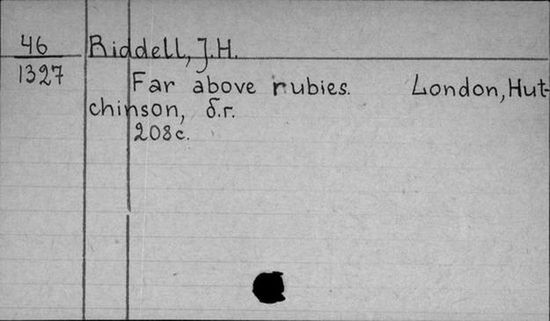 46 Riddell, J.H.
1327 Far above rubies. London, Hut-
chinson, б.г.
208 с.